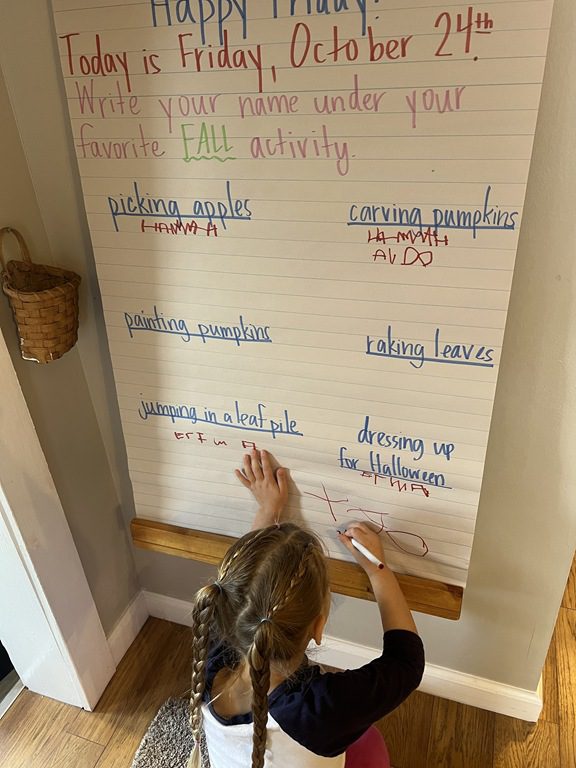 Happy Friday!
Today is Friday, October 24th.
Write your name under your
favorite FALL activity.
picking apples
carving pumpkins
painting pumpkins
raking leaves
jumping in a leaf pile
dressing up
for Halloween